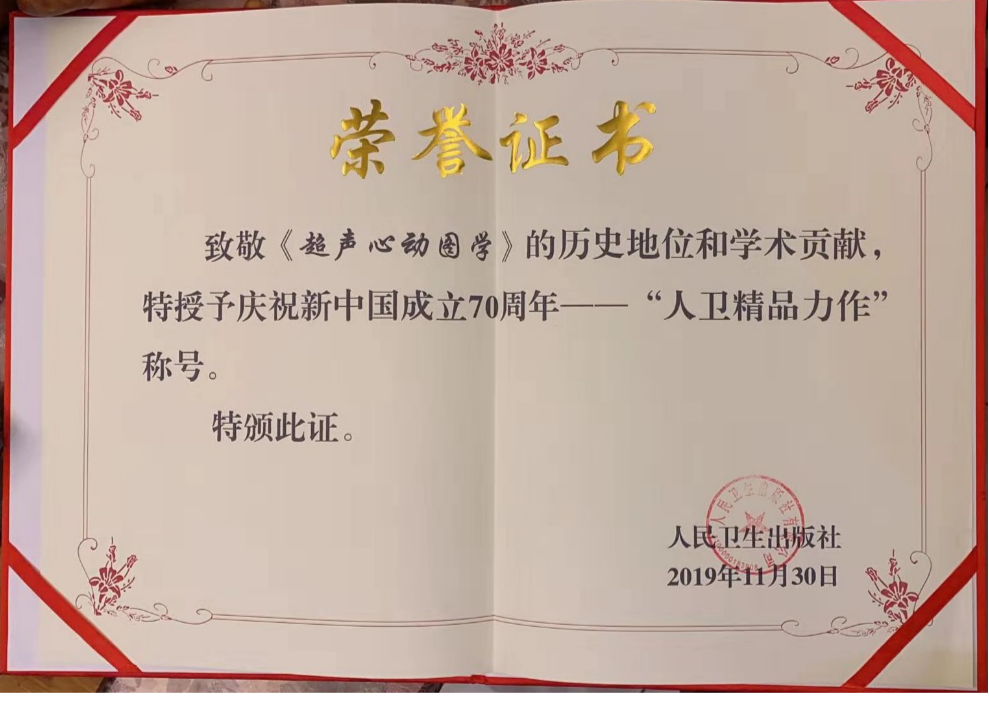 荣誉证书
致敬《超声心动图学》的历史地位和学术贡献，
特授予庆祝新中国成立70周年——“人卫精品力作”
称号。
特颁此证。
人民卫生出版社
2019年11月30日